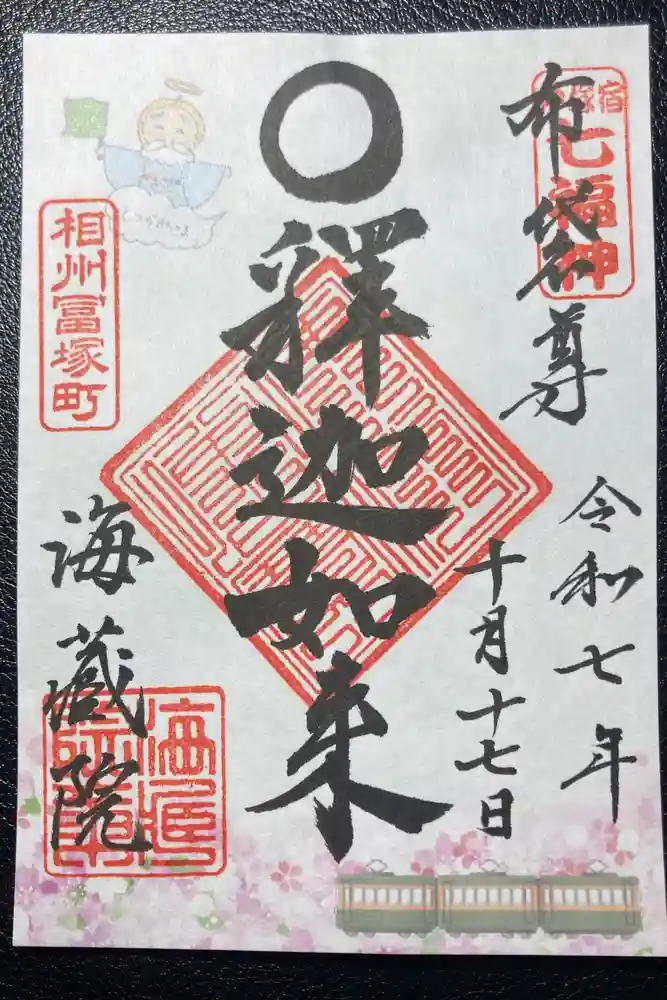 布袋尊
七福神
令和七年
十月十七日
釋迦如来
相州冨塚町
海蔵院